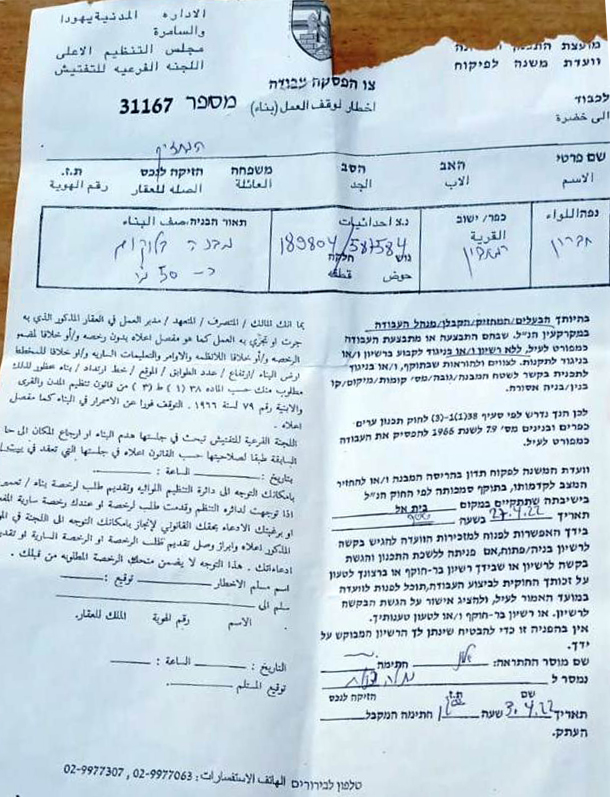 الاداره المدنية يهودا
والسامرة
مجلس التنظيم الاعلى
اللجنه الفرعيه للتفتيش
מועצת התכנון
וועדת משנה לפיקוח
לכבוד
الى حضرة
צו הפסקת עבודה
اخطار لوقف العمل (بناء)
מספר 31167
המחזיק
שם פרטי
האב
הסב
משפחה
הזיקה לנכס
ת.ז.
الاسم
الاب
الجد
العائلة
الصله للعقار
رقم الهوية
נפה/לווא
כפר/ ישוב
القرية
נ.צ احداثيات
גוש חלקה
حوض قطعه
תאור הבניה-صف البناء
חברון
189804/587584
מבנה בלוקים
כ- 50 מ׳
בהיותך הבעלים/המחזיק/הקבלן/מנהל העבודה
במקרקעין הנ״ל. שבהם התבצעה או מתבצעת העבודה
כמפורט לעיל, ללא רשיון ו/או בניגוד לקבוע ברשיון ו/או
בניגוד לתקנות. לצווים ולהוראות שבתוקף, ו/או בניגוד
לתכנית בקשר לשטח המבנה/גובה/מס׳ קומות/מיקום/קו
בנין/בניה אסורה.
לכן הנך נדרש לפי סעיף 38(1)(3-) לחוק תכנון ערים-
כפרים ובנינים מס׳ 79 לשנת 1966 להפסיק את העבודה
כמפורט לעיל.
וועדת המשנה לפקוח תדון בהריסת המבנה ו/או להחזיר
המצב לקדמותו, בתוקף סמכותה לפי החוק הנ״ל
בישיבתה שתתקיים במקום בית אל
תאריך 27.4.22 בשעה
בידך האפשרות לפנות למזכירות הוועדה להגיש בקשה
לרשיון בניה/פתוח,אם פנית ללשכת התכנון והגשת
בקשה לרשיון או שבידך רשיון בר-תוקף או ברצונך לטעון
על זכותך החוקית לביצוע העבודה,תוכל לפנות לועדה
במועד האמור לעיל, ולהציג אישור על הגשת הבקשה
לרשיון. או רשיון בר-תוקף ו/או לטעון טענותיך.
אין בהפניה זו כדי להבטיח שינתן לך הרשיון המבוקש על
ידך.
שם מוסר ההתראה: חתימה
נמסר ל
שם ת.ז הזיקה לנכס
תאריך 3.4.22 שעה חתימה המקבל
העתק.
بما انك المالك / المتصرف / المتعهد / مدير العمل في العقار المذكور الذي به
جرت او تجري به العمل كما هو مفصل اعلاه بدون رخصه و/أو خلافا لمضمو
الرخصه و/أو خلافا للانظمه والاوامر والتعليمات الساريه و/او خلافا للمخطط
ارض البناء /ارتفاع / عدد الطوابق / الموقع / خط ارتداد / بناء محظور لذلك
مطلوب منك حسب الماده ٣٨ (١) ط (٣) من قانون تنظيم المدن والقرى
والابنية رقم ٧٩ لسنة ١٩٦٦ . التوقف فورا عن الاستمرار في البناء كما مفصل
اعلاه .
اللجنه الفرعيه للتفتيش تبحث في جلستها هدم البناء او ارجاع المكان الى حا
السابقة طبقا لصلاحيتها حسب القانون اعلاه في جلستها التي تعقد في
بتاريخ : الساعة :
بامكانك التوجه الى دائرة التنظيم اللوائيه وتقديم طلب لرخصة بناء/ تعمير
اذا توجهت لدائرة التنظم وقدمت طلب لرخصة او عندك رخصة سارية المفع
او برغبتك الادعاء بحقك القانوني لانجاز بامكانك التوجه الى اللجنة في المو
المذكور اعلاه وابراز وصل تقديم طلب الرخصة او الرخصة السارية او تقدي
ادعاءاتك . هذا التوجه لا يضمن منحك الرخصة المطلوبه من قبلك .
اسم مسلم الاخطار توقيع :
سلم الى
الاسم رقم الهوية الملك للعقار.
التاريخ : الساعة :
توقيع المستلم
טלפון לבירורים الهاتف الاستفسارات : 02-9977063 , 02-9977307